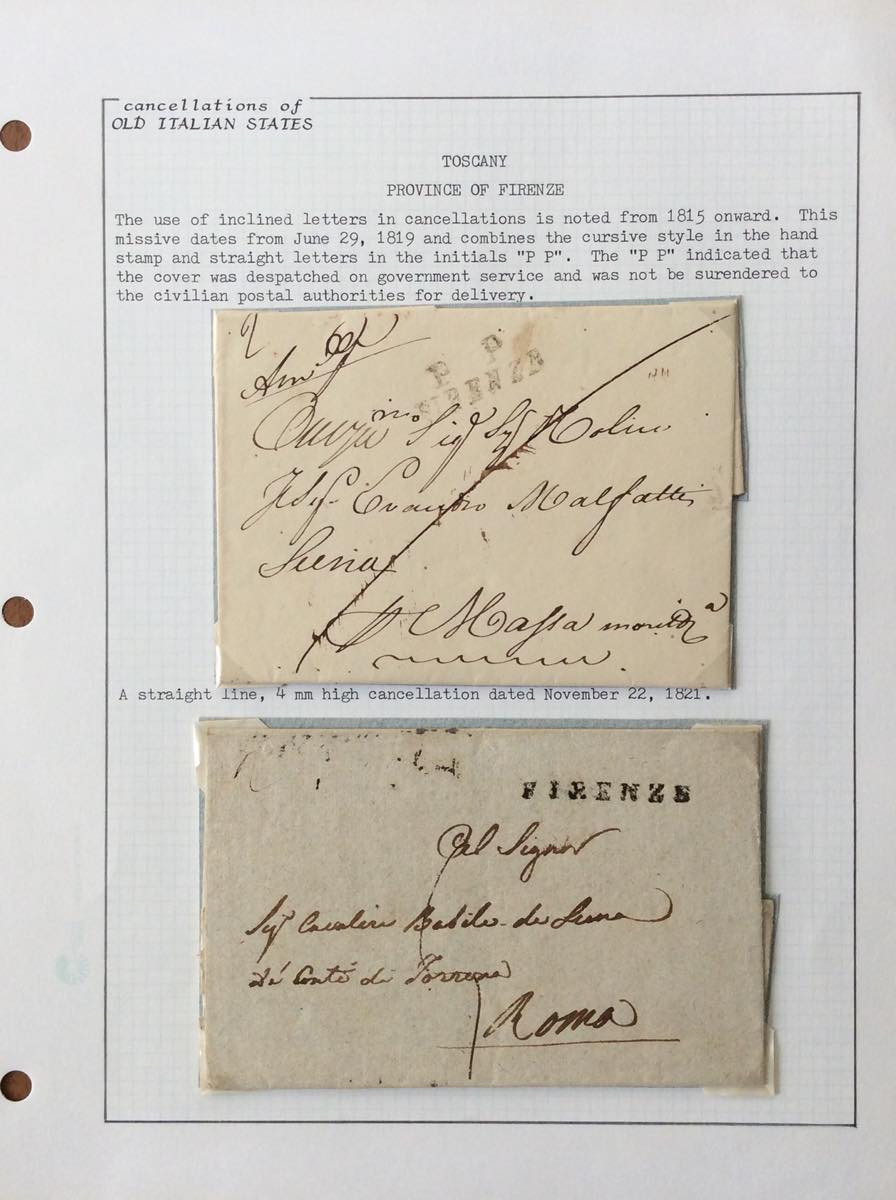 cancellations of
OLD ITALIAN STATES
TOSCANY
PROVINCE OF FIRENZE
The use of inclined letters in cancellations is noted from 1815 onward. This
missive dates from June 29, 1819 and combines the cursive style in the hand
stamp and straight letters in the initials "P P". The "P P" indicated that
the cover was despatched on government service and was not be surendered to
the civilian postal authorities for delivery.
P P
FIRENZE
Sig
Malfatti
Siena
Massa
A straight line, 4 mm high cancellation dated November 22, 1821.
FIRENZE
Al Signor
Cavaliere
Conte di
Roma